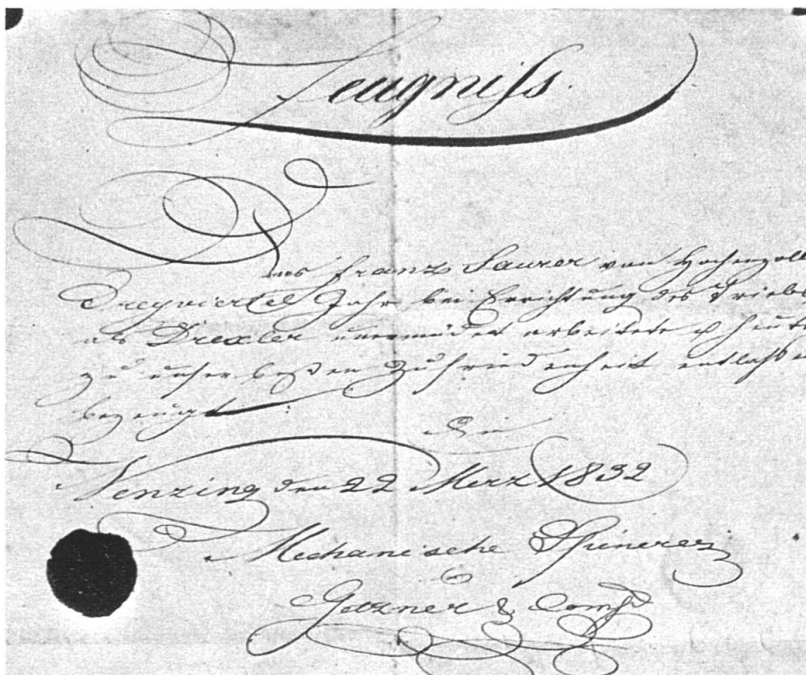 Zeugniss.
Das Franz Saurer von Hochenzoll
Dreyviertel Jahr bei Errichtung des Triebs
als Drexler unermüdet arbeitete & heute
zu unser besten Zufriedenheit entlassen
bezeugt
Die
Nenzing den 22 Merz 1832
Mechanische Spinerei
Getzner & Comp